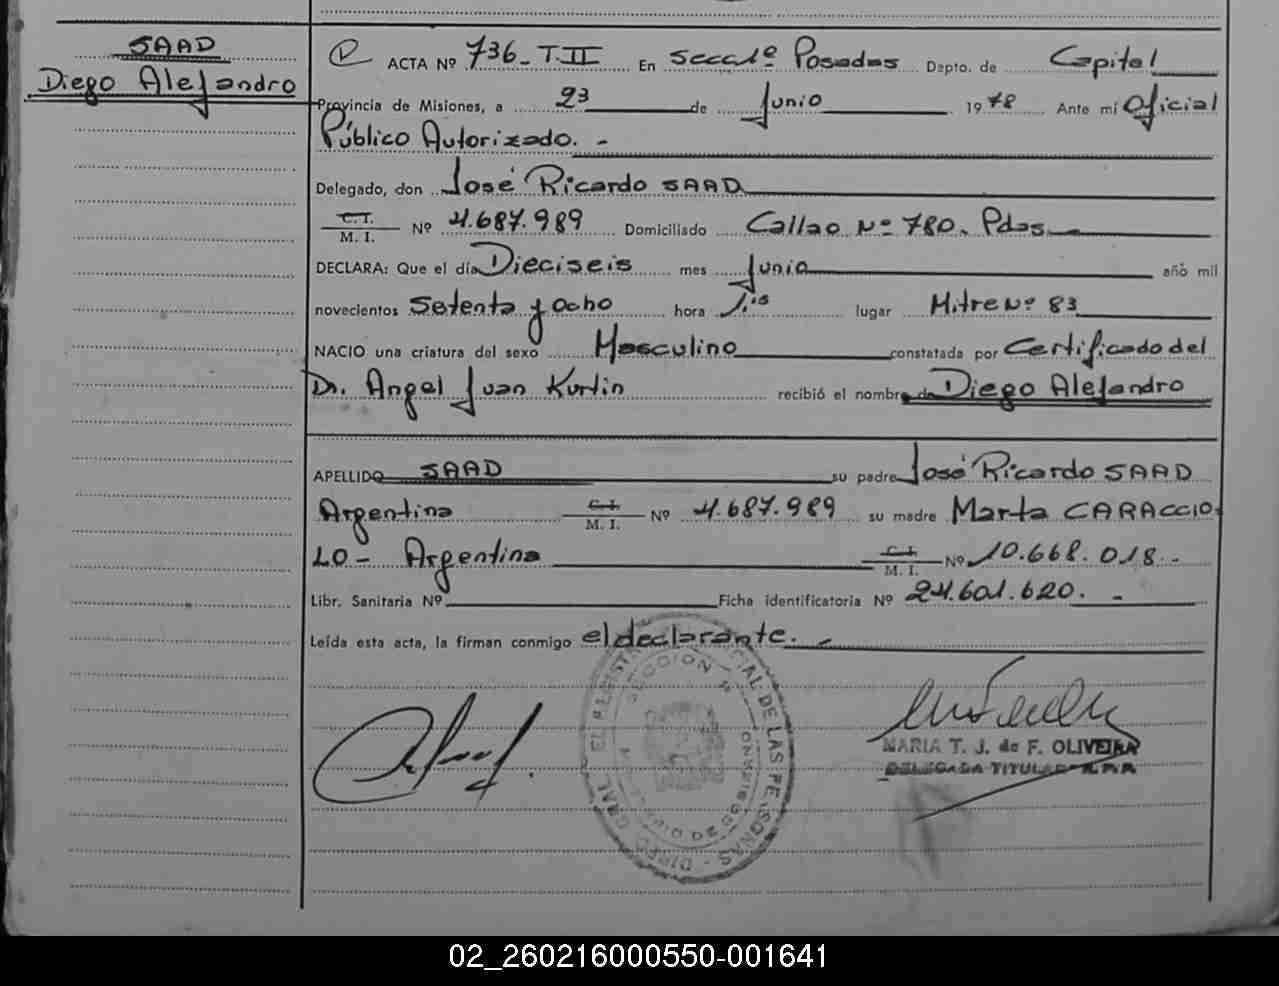 SAAD
Diego Alejandro
ACTA Nº 736 - T. II En Secc. 1º Posadas Dpto. de Capital
Provincia de Misiones, a 23 de Junio 1978 Ante mí Oficial
Público Autorizado. -
Delegado, don José Ricardo SAAD
C.I.
M. I. Nº 4.687.989 Domiciliado Callao Nº 780. Pdas.
DECLARA: Que el día Dieciseis mes Junio año mil
novecientos Setenta y ocho hora 1,15 lugar Mitre Nº 83
NACIO una criatura del sexo Masculino constatada por Certificado del
Dr. Angel Juan Kurtin recibió el nombre de Diego Alejandro
APELLIDO SAAD su padre José Ricardo SAAD
Argentino C.I. M. I. Nº 4.687.989 su madre Marta CARACCIO-
LO - Argentina C.I. M. I. Nº 10.668.018. -
Libr. Sanitaria Nº Ficha identificatoria Nº 24.601.620. -
Leída esta acta, la firman conmigo el declarante. -
MARIA T. J. de F. OLIVEIRA
DELEGADA TITULAR R.P.P.
02_260216000550-001641